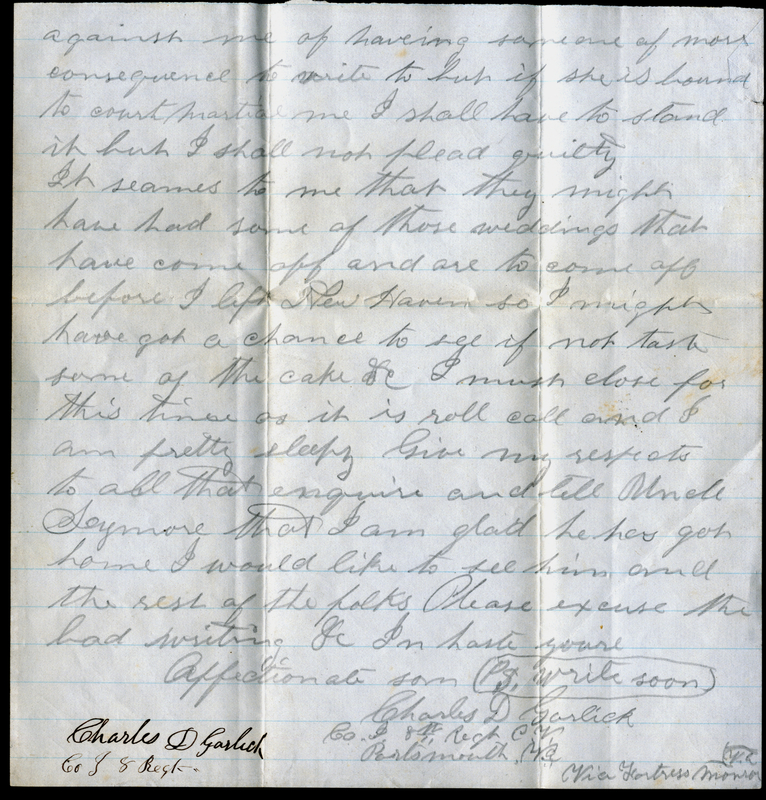 against me of haveing someone of more
consequence to write to but if she is bound
to court martial me I shall have to stand
it but I shall not plead guilty
It seames to me that they might
have had some of those weddings that
have come off and are to come off
before I left New Haven so I might
have got a chance to see if not taste
some of the cake &c I must close for
this time as it is roll call and I
am pretty sleepy Give my respects
to all that enquire and tell Uncle
Seymore that I am glad he has got
home I would like to see him and
the rest of the folks Please excuse the
bad writing &c In haste youre
Affectionate son (PS, write soon)
Charles D Garlick
Co. I 8th Regt C.V.
Portsmouth, Va
Via Fortress Monroe
Va
Charles D Garlick
Co I 8 Regt.